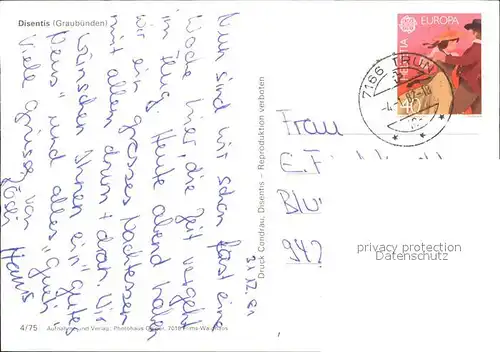 Disentis (Graubünden)
31.12.81
Nun sind wir schon fast eine
Woche hier, die Zeit vergeht
im Flug. Heute abend haben
wir ein grosses Nachtessen
mit allem drum + dran. Wir
wünschen Ihnen ein "gutes
Neus" und alles "Gueti".
Viele Grüsse von
Rösli
Hans
Druck Condrau, Disentis – Reproduktion verboten
4/75 Aufnahme und Verlag: Photohaus 7018 Flims-Waldhaus
EUROPA
HELVETIA
40
7166 TRUN
Frau
E. F
Blu
942
privacy protection
Datenschutz